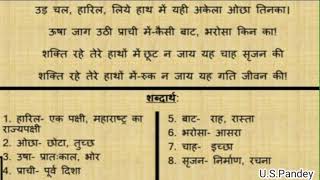 उड़ चल, हारिल, लिये हाथ में यही अकेला ओछा तिनका।
ऊषा जाग उठी प्राची में-कैसी बाट, भरोसा किन का!
शक्ति रहे तेरे हाथों में छूट न जाय यह चाह सृजन की
शक्ति रहे तेरे हाथों में-रुक न जाय यह गति जीवन की!
शब्दार्थ:
1. हारिल- एक पक्षी, महाराष्ट्र का
राज्यपक्षी
2. ओछा- छोटा, तुच्छ
3. उषा- प्रातःकाल, भोर
4. प्राची- पूर्व दिशा
5. बाट- राह, रास्ता
6. भरोसा- आसरा
7. चाह- इच्छा
8. सृजन- निर्माण, रचना
U.S.Pandey